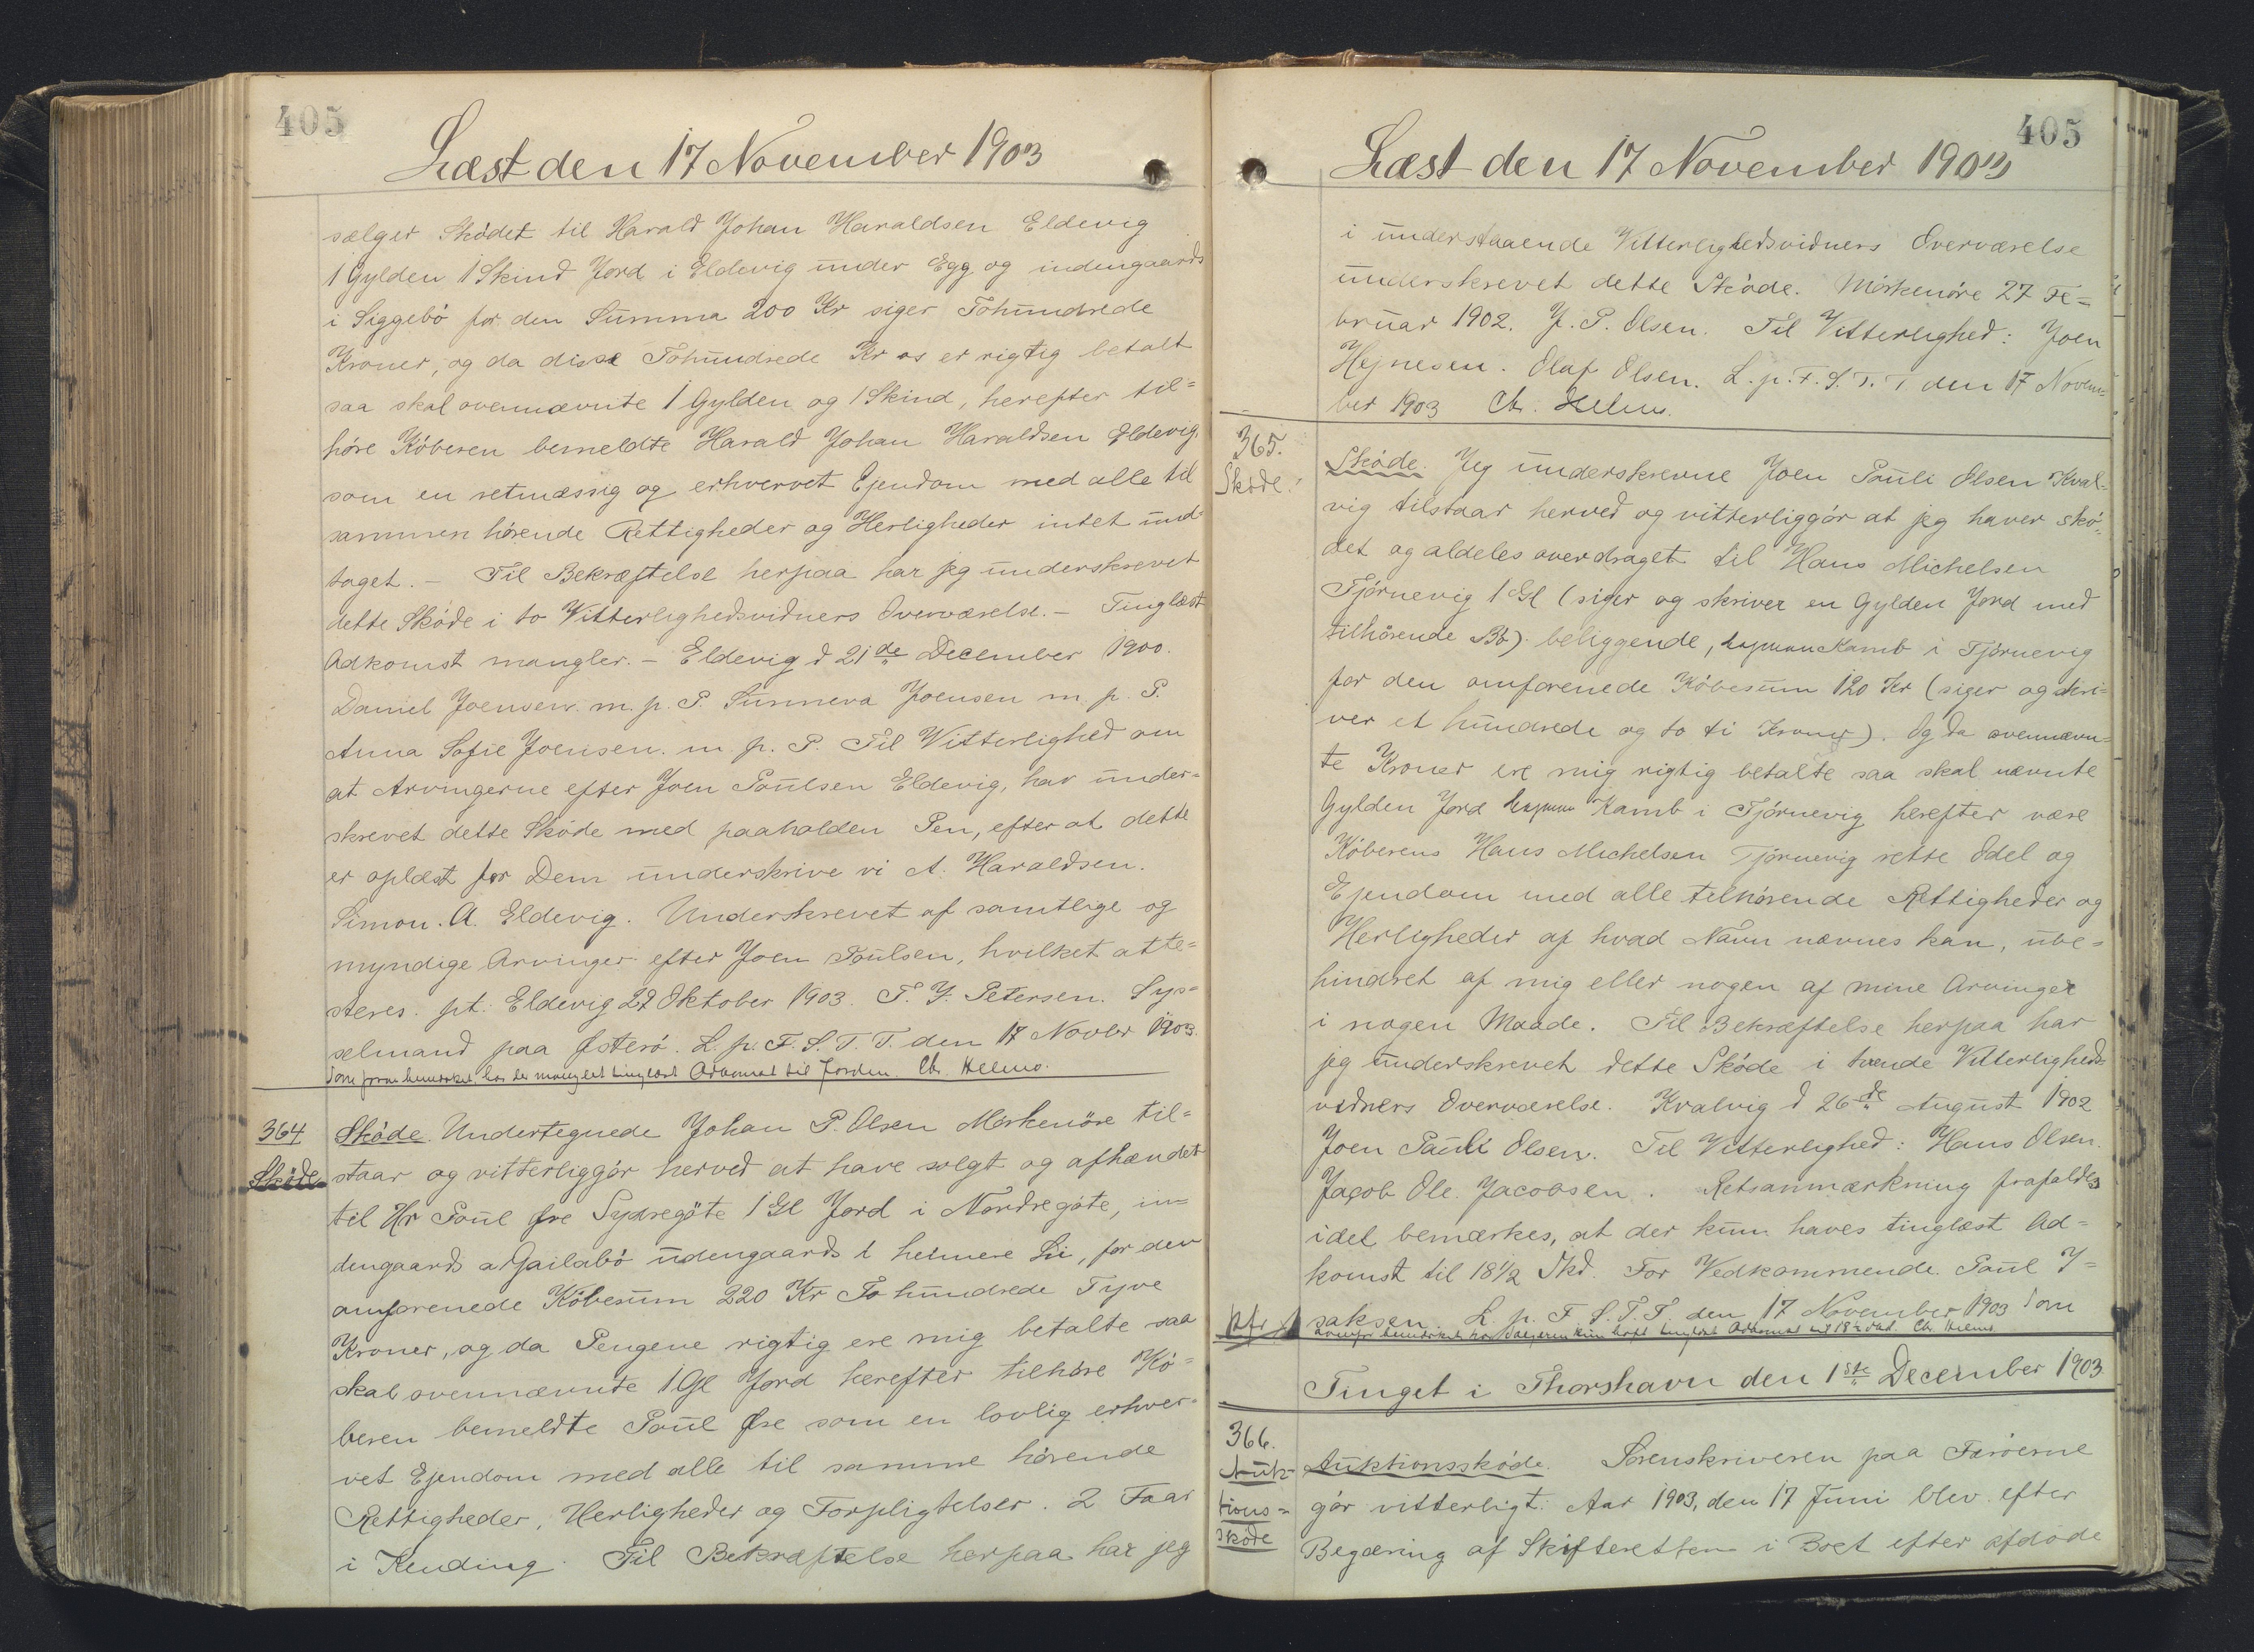 405
Læst den 17 November 1903
sælger Skødet til Harald Johan Haraldsen Eldevig
1 Gylden 1 Skind Jord i Eldevig under Egg og indengaards
i Siggebö for den Summa 200 Kr siger Tohundrede
Kroner, og da disse Tohundrede Kr os er rigtig betalt
saa skal ovennævnte 1 Gylden og 1 Skind, herefter til=
høre Köberen bemeldte Harald Johan Haraldsen Eldevig,
som en retmæssig og erhvervet Ejendom med alle til
sammen hørende Rettigheder og Herligheder intet und-
taget. - Til Bekræftelse herpaa har jeg underskrevet
dette Sköde i to Vitterlighedsvidners Overværelse. - Tinglæst
Adkomst mangler. - Eldevig d 21de December 1900.
Daniel Joensen. m. p. P. Sunneva Joensen m. p. P.
Anna Sofie Joensen. m. p. P. Til Vitterlighed om
at Arvingerne efter Joen Poulsen Eldevig, har under=
skrevet dette Sköde med paaholden Pen, efter at dette
er oplæst for Dem underskrive vi A. Haraldsen.
Simon. A. Eldevig. Underskrevet af samtlige og
myndige Arvinger efter Joen Poulsen, hvilket atte=
steres. pt. Eldevig 22 Oktober 1903. P. J. Petersen. Sys=
selmand paa Østerö. L. p. F. S. T. T. den 17 Novbr 1903.
Som foran bemærket har der manglet tinglæst Adkomst til Jorden. Chr. Helms.
364
Sköde
Sköde. Undertegnede Johan P. Olsen Mørkenöre til=
staar og vitterliggör herved at have solgt og afhændet
til Hr Poul Øre Sydregöte 1 Gl Jord i Nordregöte, in=
dengaards a Gailabö udengaards t heimere Lii, for den
omforenede Köbesum 220 Kr To hundrede Tyve
Kroner, og da Pengene rigtig ere mig betalte saa
skal ovennævnte 1 Gl Jord herefter tilhöre Kö=
beren bemeldte Poul Øre som en lovlig erhver=
vet Ejendom med alle til samme hörende
Rettigheder, Herligheder og Forpligtelser. 2 Faar
i Kending. Til Bekræftelse herpaa har jeg
405
Læst den 17 November 1903
i understaaende Vitterlighedsvidners Overværelse
underskrevet dette Sköde. Mörkenöre 27 Fe=
bruar 1902. J. P. Olsen. Til Vitterlighed: Joen
Hejnesen. Olaf Olsen. L. p. F. S. T. T den 17 Novem=
ber 1903 Chr. Helms.
365.
Sköde.
Sköde. Jeg underskrevne Joen Pauli Olsen Kval-
vig tilstaar herved og vitterliggör at jeg haver skö-
det og aldeles overdraget til Hans Michelsen
Tjörnevig 1 Gl (siger og skriver en Gylden Jord med
tilhörende Bö) beliggende, Kamb i Tjörnevig
for den omforenede Köbesum 120 Kr (siger og skri=
ver et hundrede og to ti Kroner). Og da ovennævn=
te Kroner ere mig rigtig betalte saa skal nævnte
Gylden Jord Kamb i Tjörnevig herefter være
Köberens Hans Michelsen Tjörnevig rette Odel og
Ejendom med alle tilhörende Rettigheder og
Herligheder af hvad Navn nævnes kan, ube=
hindret af mig eller nogen af mine Arvinger
i nogen Maade. Til Bekræftelse herpaa har
jeg underskrevet dette Sköde i tvende Vitterligheds=
vidners Overværelse. Kvalvig d 26de August 1902
Joen Pauli Olsen. Til Vitterlighed: Hans Olsen.
Jacob Ole. Jacobsen. Retsanmærkning frafaldes
idet bemærkes, at der kun haves tinglæst Ad=
komst til 18½ Skd. For Vedkommende. Poul I=
saksen. L. p. F. S. T. T. den 17 November 1903 Som
ovenfor bemærket har Sælgeren kun havt tinglæst Adkomst til 18½ Skd. Chr. Helms.
Tinget i Thorshavn den 1ste December 1903
366.
Auk-
tions=
sköde
Auktionssköde. Sorenskriveren paa Færöerne
gör vitterligt: Aar 1903, den 17 Juni blev efter
Begæring af Skifteretten i Boet efter afdöde